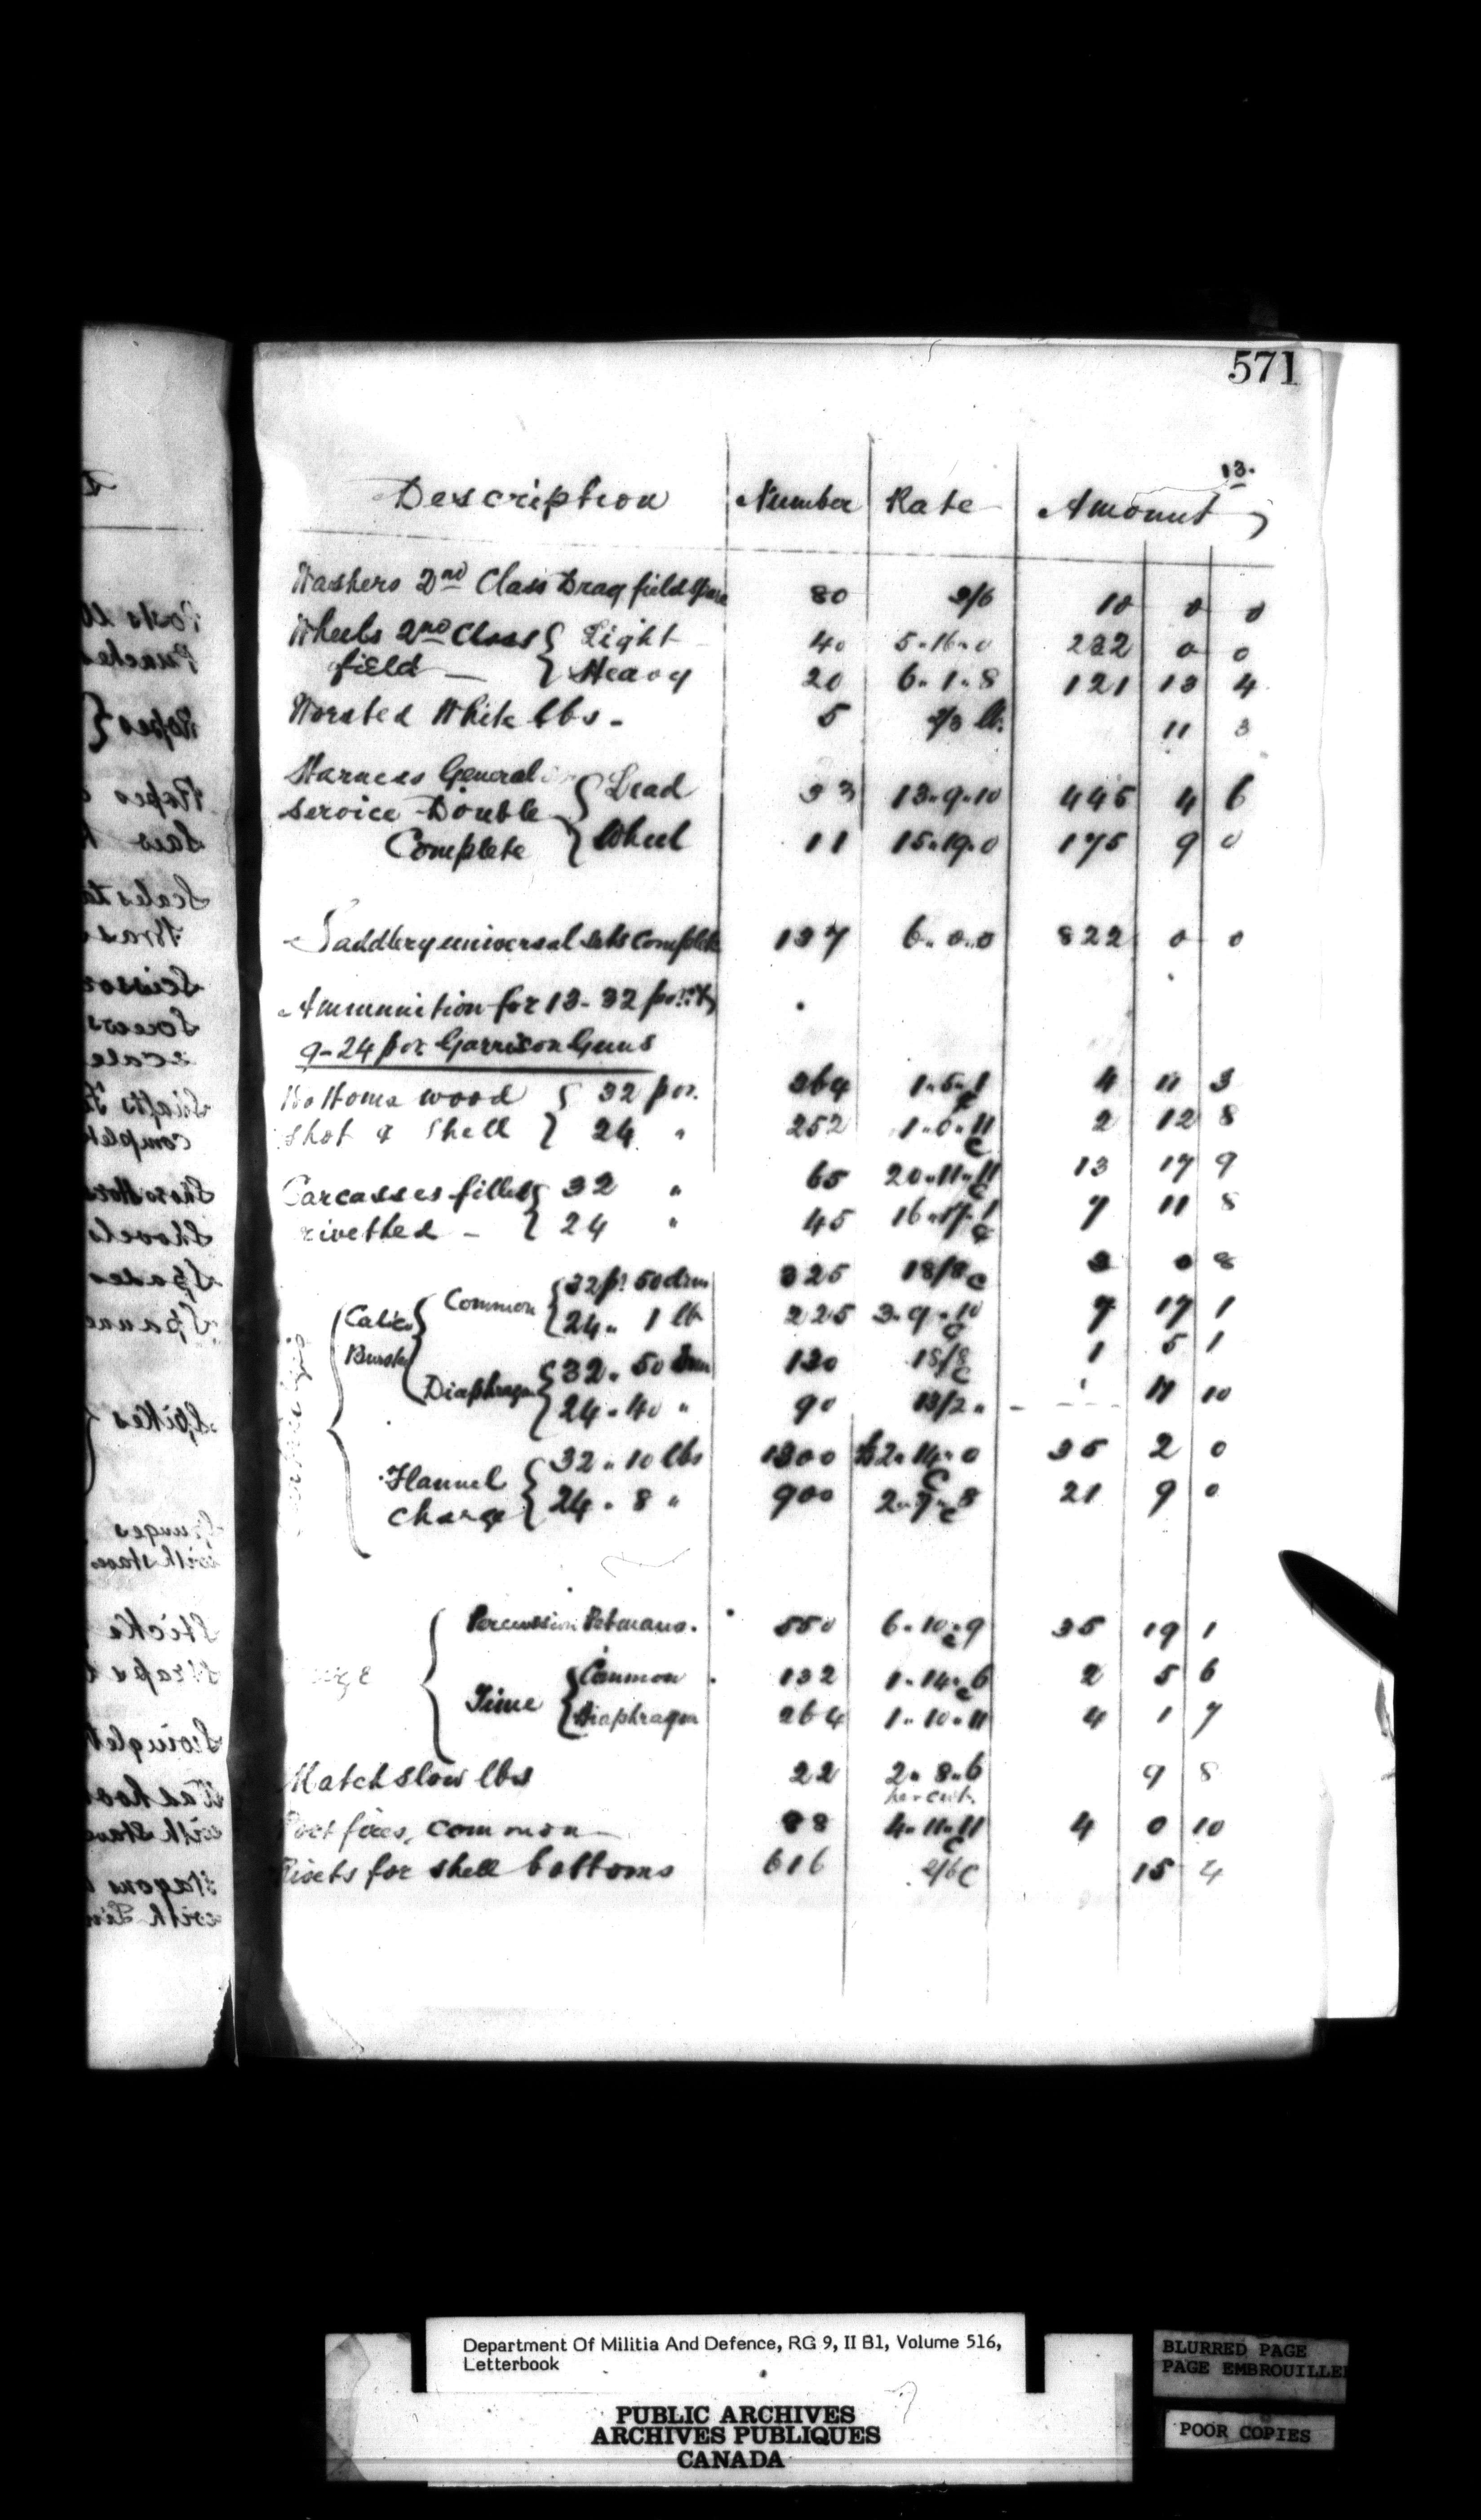 571
13.
Description Number Rate Amount
Washers 2nd Class Drag field Spare 80 2/6 10 0 0
Wheels 2nd Class { Light 40 5.16.0 232 0 0
field { Heavy 20 6.1.8 121 13 4
Worsted White lbs. 5 2/3 lb. 11 3
Harness General
Service Double { Lead 33 13.9.10 445 4 6
Complete { Wheel 11 15.19.0 175 9 0
Saddlery universal sets complete 137 6.0.0 822 0 0
Ammunition for 13-32 por &
9-24 por Garrison Guns
Bottoms wood { 32 por. 364 1.5.1 c 4 11 3
Shot & Shell { 24 " 252 1.0.11 c 2 12 8
Carcasses filled { 32 " 65 20.11.11 c 13 17 9
rivetted { 24 " 45 16.17.1 c 7 11 8
Calico Burster { Common { 32 pr 50 drm 325 18/8 c 3 0 8
24 " 1 lb 225 3.9.10 c 7 17 1
Diaphragm { 32 " 50 drm 130 18/8 c 1 5 1
24 " 40 " 90 13/2 " 11 10
Flannel { 32 " 10 lbs 1300 2.14.0 c 35 2 0
Charge { 24 " 8 " 900 2.7.8 c 21 9 0
Percussion Petmans. 550 6.10.9 c 35 19 1
Time { Common 132 1.14.6 c 2 5 6
Diaphragm 264 1.10.11 4 1 7
Match slow lbs 22 2.8.6 9 8
per cwt.
Port fires, common 88 4.11.11 c 4 0 10
Rivets for shell bottoms 616 2/6 c 15 4
Department Of Militia And Defence, RG 9, II B1, Volume 516,
Letterbook
PUBLIC ARCHIVES
ARCHIVES PUBLIQUES
CANADA
BLURRED PAGE
PAGE EMBROUILLEE
POOR COPIES